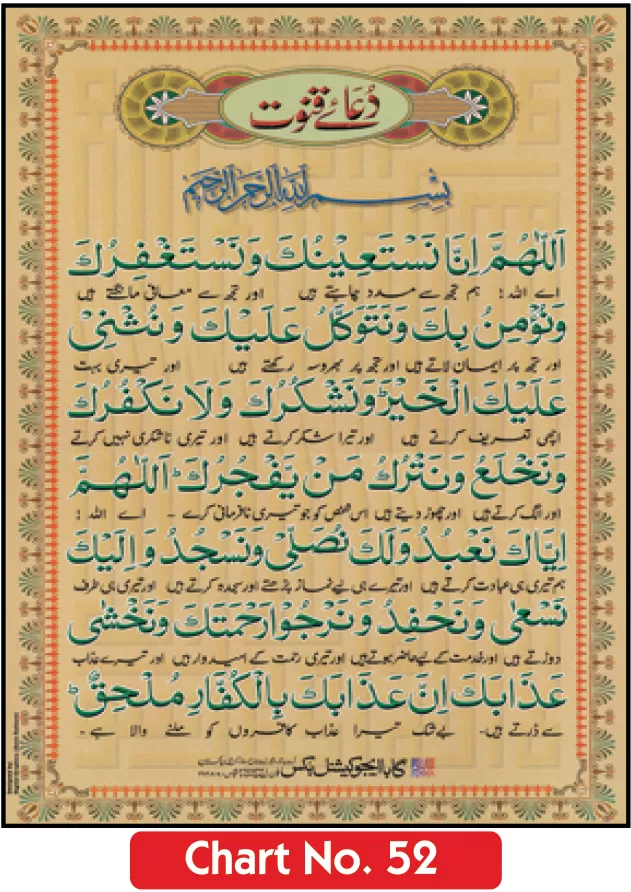 دُعائے قنوت
بِسْمِ اللهِ الرَّحْمٰنِ الرَّحِيْمِ
اَللّٰهُمَّ اِنَّا نَسْتَعِيْنُكَ وَنَسْتَغْفِرُكَ
اے اللہ! ہم تجھ سے مدد چاہتے ہیں اور تجھ سے معافی مانگتے ہیں
وَنُؤْمِنُ بِكَ وَنَتَوَكَّلُ عَلَيْكَ وَنُثْنِيْ
اور تجھ پر ایمان لاتے ہیں اور تجھ پر بھروسہ رکھتے ہیں اور تیری بہت
عَلَيْكَ الْخَيْرَؕ وَنَشْكُرُكَ وَلَا نَكْفُرُكَ
اچھی تعریف کرتے ہیں اور تیرا شکر کرتے ہیں اور تیری ناشکری نہیں کرتے
وَنَخْلَعُ وَنَتْرُكُ مَنْ يَّفْجُرُكَؕ اَللّٰهُمَّ
اور الگ کرتے ہیں اور چھوڑ دیتے ہیں اس شخص کو جو تیری نافرمانی کرے ۔ اے اللہ!
اِيَّاكَ نَعْبُدُ وَلَكَ نُصَلِّيْ وَنَسْجُدُ وَاِلَيْكَ
ہم تیری ہی عبادت کرتے ہیں اور تیرے ہی لیے نماز پڑھتے اور سجدہ کرتے ہیں اور تیری ہی طرف
نَسْعٰى وَنَحْفِدُ وَنَرْجُوْا رَحْمَتَكَ وَنَخْشٰى
دوڑتے ہیں اور خدمت کے لیے حاضر ہوتے ہیں اور تیری رحمت کے امیدوار ہیں اور تیرے عذاب
عَذَابَكَ اِنَّ عَذَابَكَ بِالْكُفَّارِ مُلْحِقٌؕ
سے ڈرتے ہیں۔ بے شک تیرا عذاب کافروں کو ملنے والا ہے۔
گابا ایجوکیشنل بکس
Chart No. 52